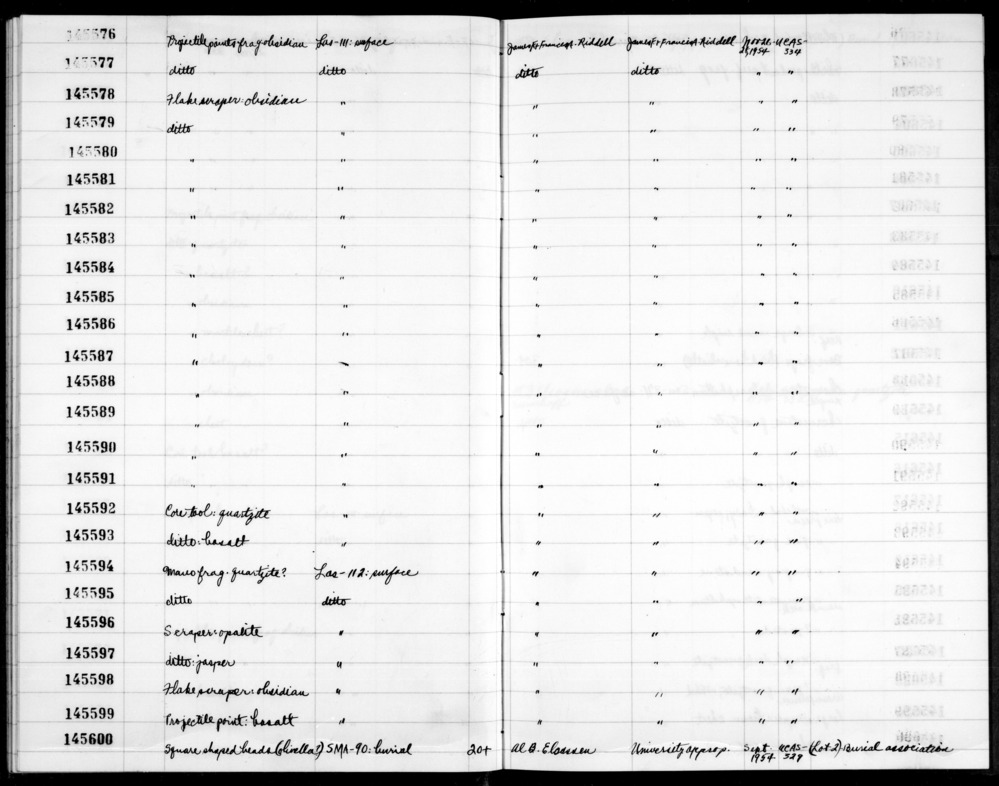 145576 Projectile points frag obsidian Las-111: surface James F. & Francis A. Riddell James F. & Francis A. Riddell 1954 UCAS 334
145577 ditto ditto ditto ditto " "
145578 Flake scraper: obsidian " " " " "
145579 ditto " " " " "
145580 " " " " " "
145581 " " " " " "
145582 " " " " " "
145583 " " " " " "
145584 " " " " " "
145585 " " " " " "
145586 " " " " " "
145587 " " " " " "
145588 " " " " " "
145589 " " " " " "
145590 " " " " " "
145591 " " " " " "
145592 Core tool: quartzite " " " " "
145593 ditto: basalt " " " " "
145594 Mano frag. quartzite? Las-112: surface " " " "
145595 ditto ditto " " " "
145596 Scraper: opalite " " " " "
145597 ditto: jasper " " " " "
145598 Flake scraper: obsidian " " " " "
145599 Projectile point: basalt " " " " "
145600 Square shaped beads (Olivella?) SMA-90: burial 20+ Al. B. Elsasser University approp. Sept. 1954 UCAS-329 (Lot 2) Burial association